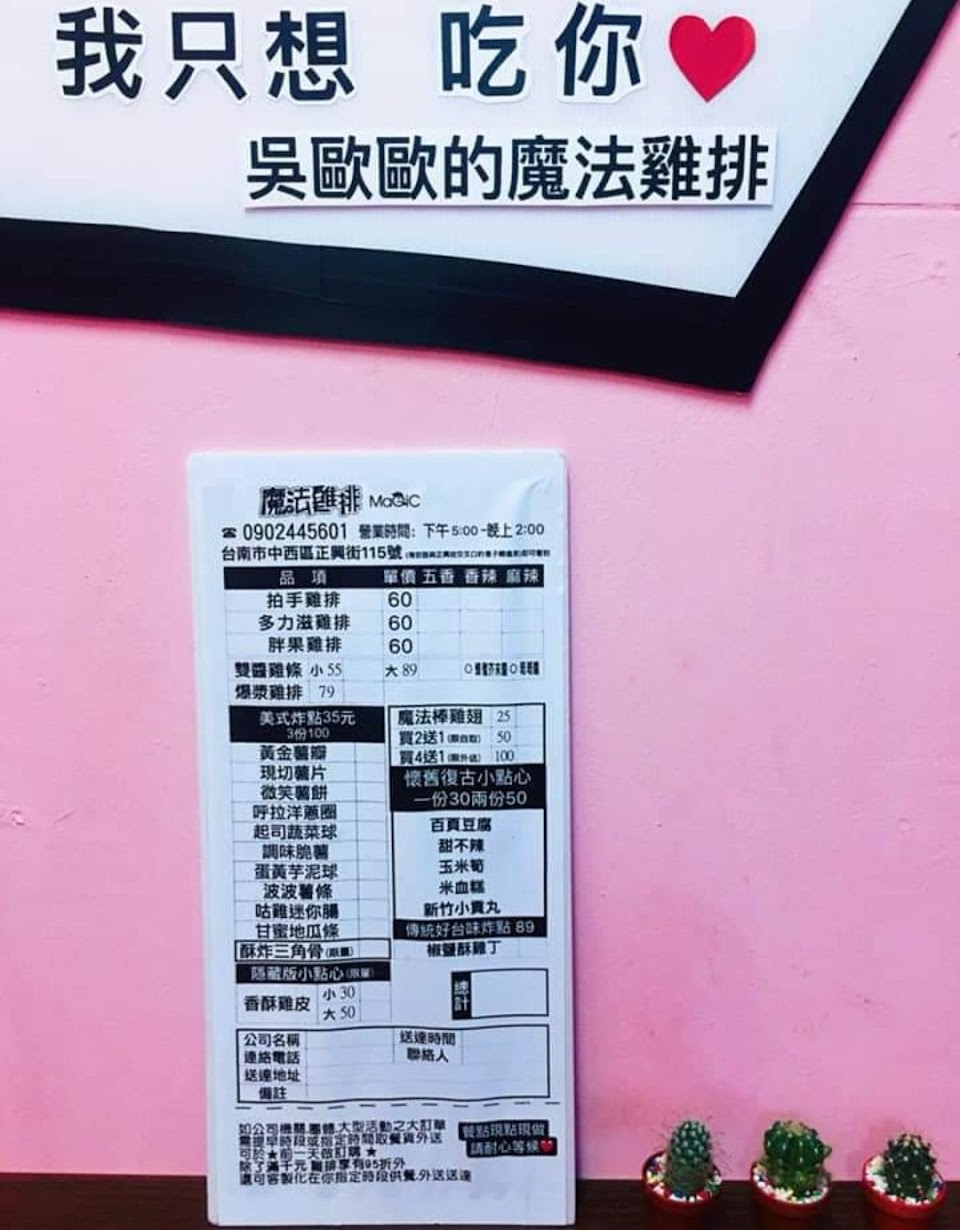 我只想 吃你
吳歐歐的魔法雞排
魔法雞排 MaGiC
☎ 0902445601 營業時間: 下午5:00-晚上2:00
台南市中西區正興街115號
品項 單價 五香 香辣 麻辣
拍手雞排 60
多力滋雞排 60
胖果雞排 60
雙醬雞條 小55 大89
爆漿雞排 79
美式炸點35元
3份100
黃金薯瓣
現切薯片
微笑薯餅
呼拉洋蔥圈
起司蔬菜球
調味脆薯
蛋黃芋泥球
波波薯條
咕雞迷你腸
甘蜜地瓜條
酥炸三角骨(限量)
隱藏版小點心(限量)
香酥雞皮 小30
大50
魔法棒雞翅 25
買2送1(限自取) 50
買4送1(限外送) 100
懷舊復古小點心
一份30兩份50
百頁豆腐
甜不辣
玉米筍
米血糕
新竹小貢丸
傳統好台味炸點 89
椒鹽酥雞丁
總計
公司名稱 送達時間
連絡電話 聯絡人
送達地址
備註
如公司機關.團體.大型活動之大訂單
需提早時段或指定時間取餐貨外送
可於★前一天做訂購★
除了滿千元 雞排享有95折外
還可客製化在你指定時段供餐.外送送達
餐點現點現做
請耐心等候